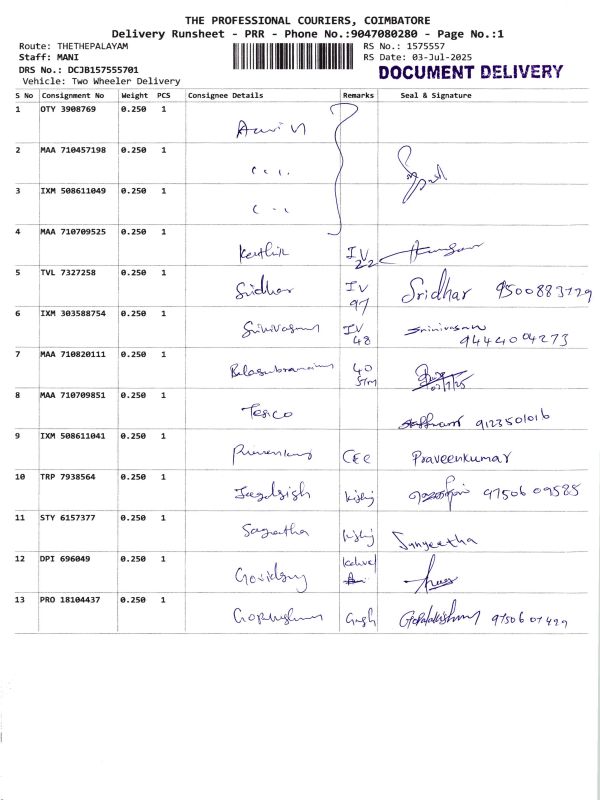 THE PROFESSIONAL COURIERS, COIMBATORE
Delivery Runsheet - PRR - Phone No.:9047080280 - Page No.:1
Route: THETHEPALAYAM RS No.: 1575557
Staff: MANI RS Date: 03-Jul-2025
DRS No.: DCJB157555701 DOCUMENT DELIVERY
Vehicle: Two Wheeler Delivery
S No Consignment No Weight PCS Consignee Details Remarks Seal & Signature
1 OTY 3908769 0.250 1
2 MAA 710457198 0.250 1
3 IXM 508611049 0.250 1
4 MAA 710709525 0.250 1 Karthik IV 22
5 TVL 7327258 0.250 1 Sridhar IV 97 Sridhar 9500883129
6 IXM 303588754 0.250 1 Srinivasan IV 48 Srinivasan 9444004273
7 MAA 710820111 0.250 1 Balasubramaniam 40
8 MAA 710709851 0.250 1 Tesco 9123501016
9 IXM 508611041 0.250 1 CEC Praveenkumar
10 TRP 7938564 0.250 1 Jagdish 9750609585
11 STY 6157377 0.250 1 Sangeetha Sangeetha
12 DPI 696049 0.250 1
13 PRO 18104437 0.250 1 Gopalakrishnan 9750607499